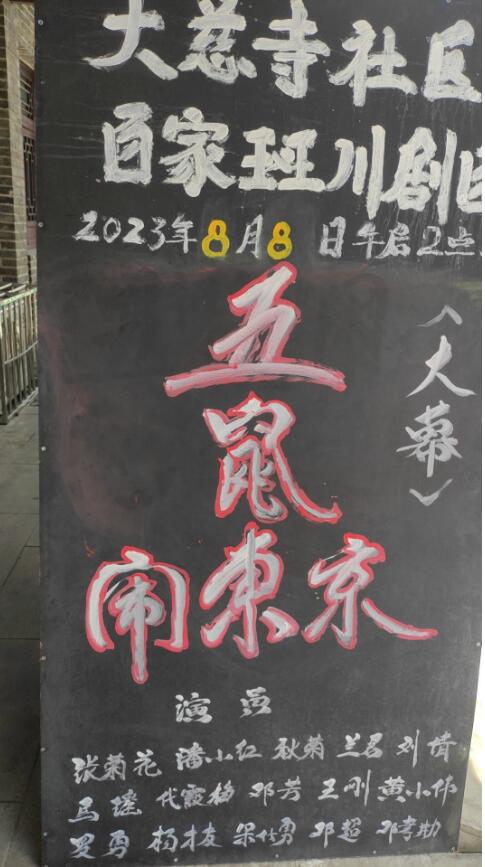 大慈寺社区
百家班川剧
2023年8月8日午后2点
五
鼠
闹東京
〈大幕〉
演员
张菊花 潘小红 秋菊 兰君 刘倩
马瑶 代霞梅 邓芳 王刚 黄小伟
罗勇 杨才友 梁仕勇 邓超 邓孝勋